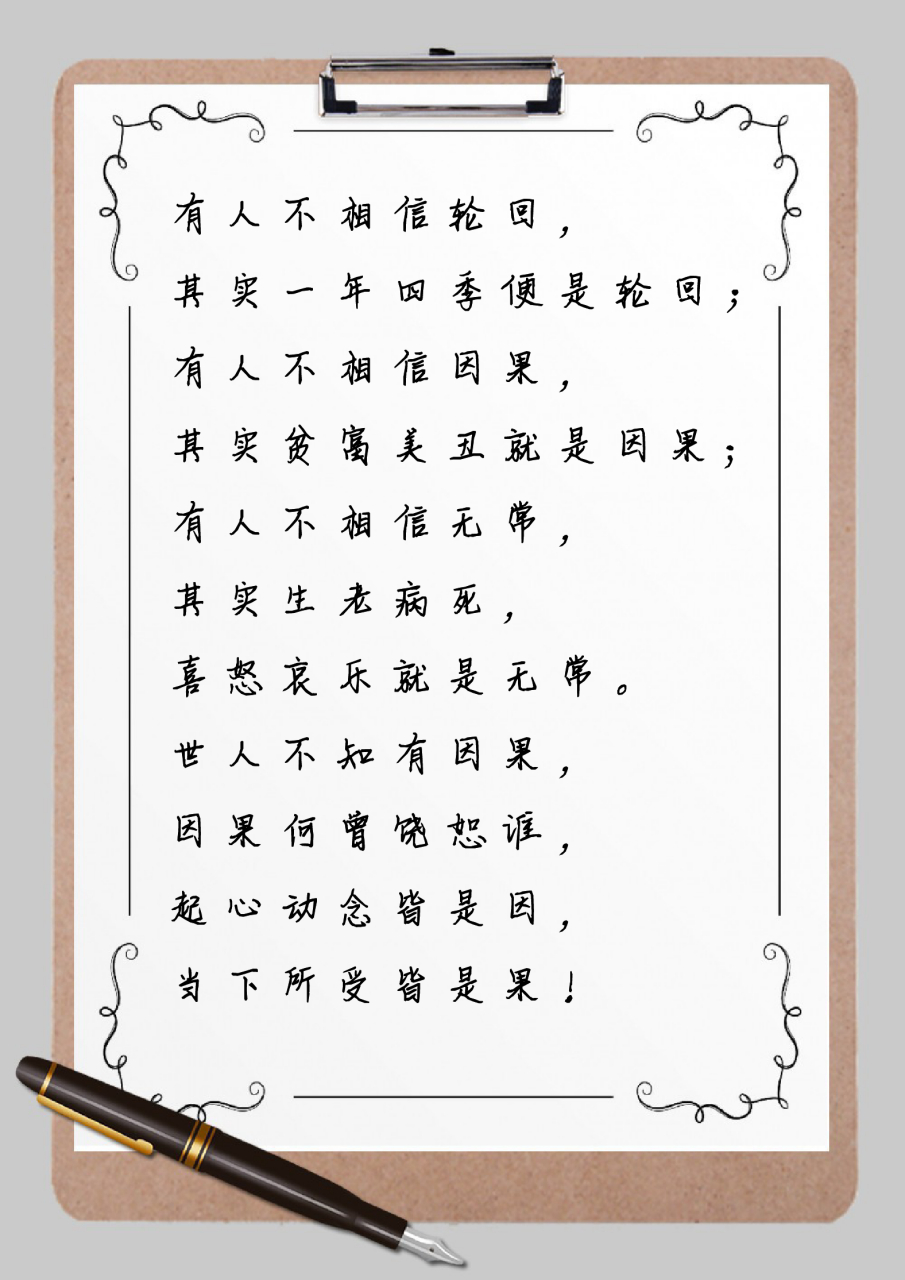 有人不相信轮回，
其实一年四季便是轮回；
有人不相信因果，
其实贫富美丑就是因果；
有人不相信无常，
其实生老病死，
喜怒哀乐就是无常。
世人不知有因果，
因果何曾饶恕谁，
起心动念皆是因，
当下所受皆是果！